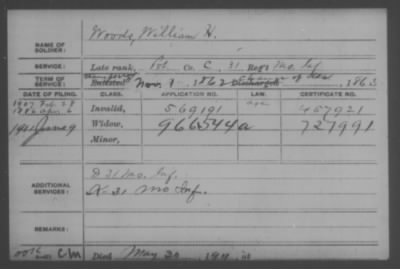 NAME OF SOLDIER: Woods, William H.
SERVICE: Late rank, Pvt Co. C, 31 Reg't Mo. Inf
TERM OF SERVICE: Enlisted Nov. 1862 Discharged , 1863
DATE OF FILING. CLASS. APPLICATION NO. LAW. CERTIFICATE NO.
1907 Feb. 28
Invalid, 569191 age 457921
1911 June 9 Widow, 966544 a 727991
Minor,
D 31 Mo. Inf.
ADDITIONAL SERVICES: K-31 Mo Inf.
REMARKS:
C/m Died May 20, 1911, at